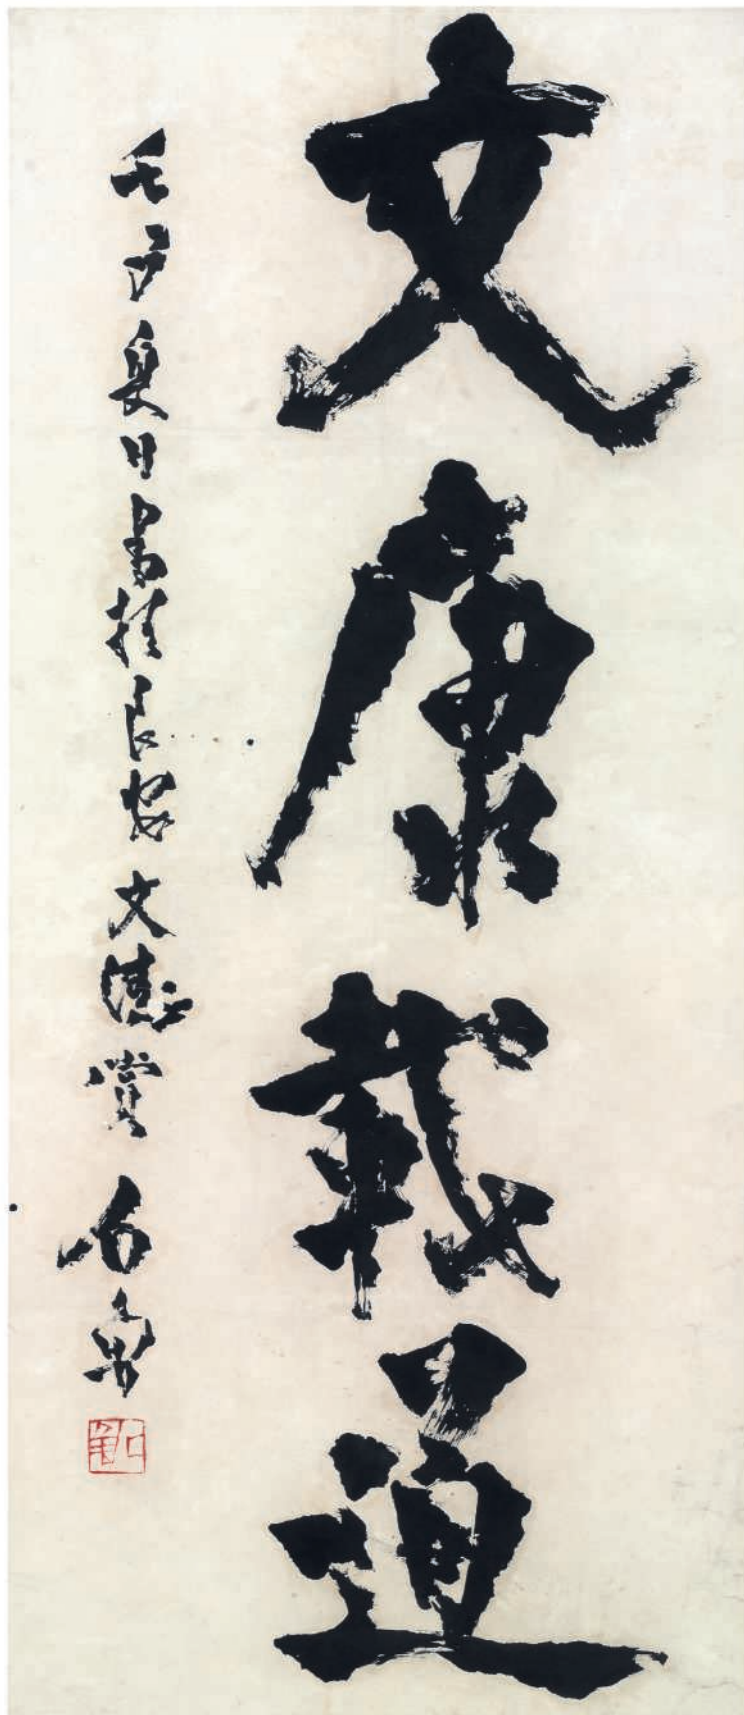 文康載道
壬子夏日書於長安 文德賞 石魯